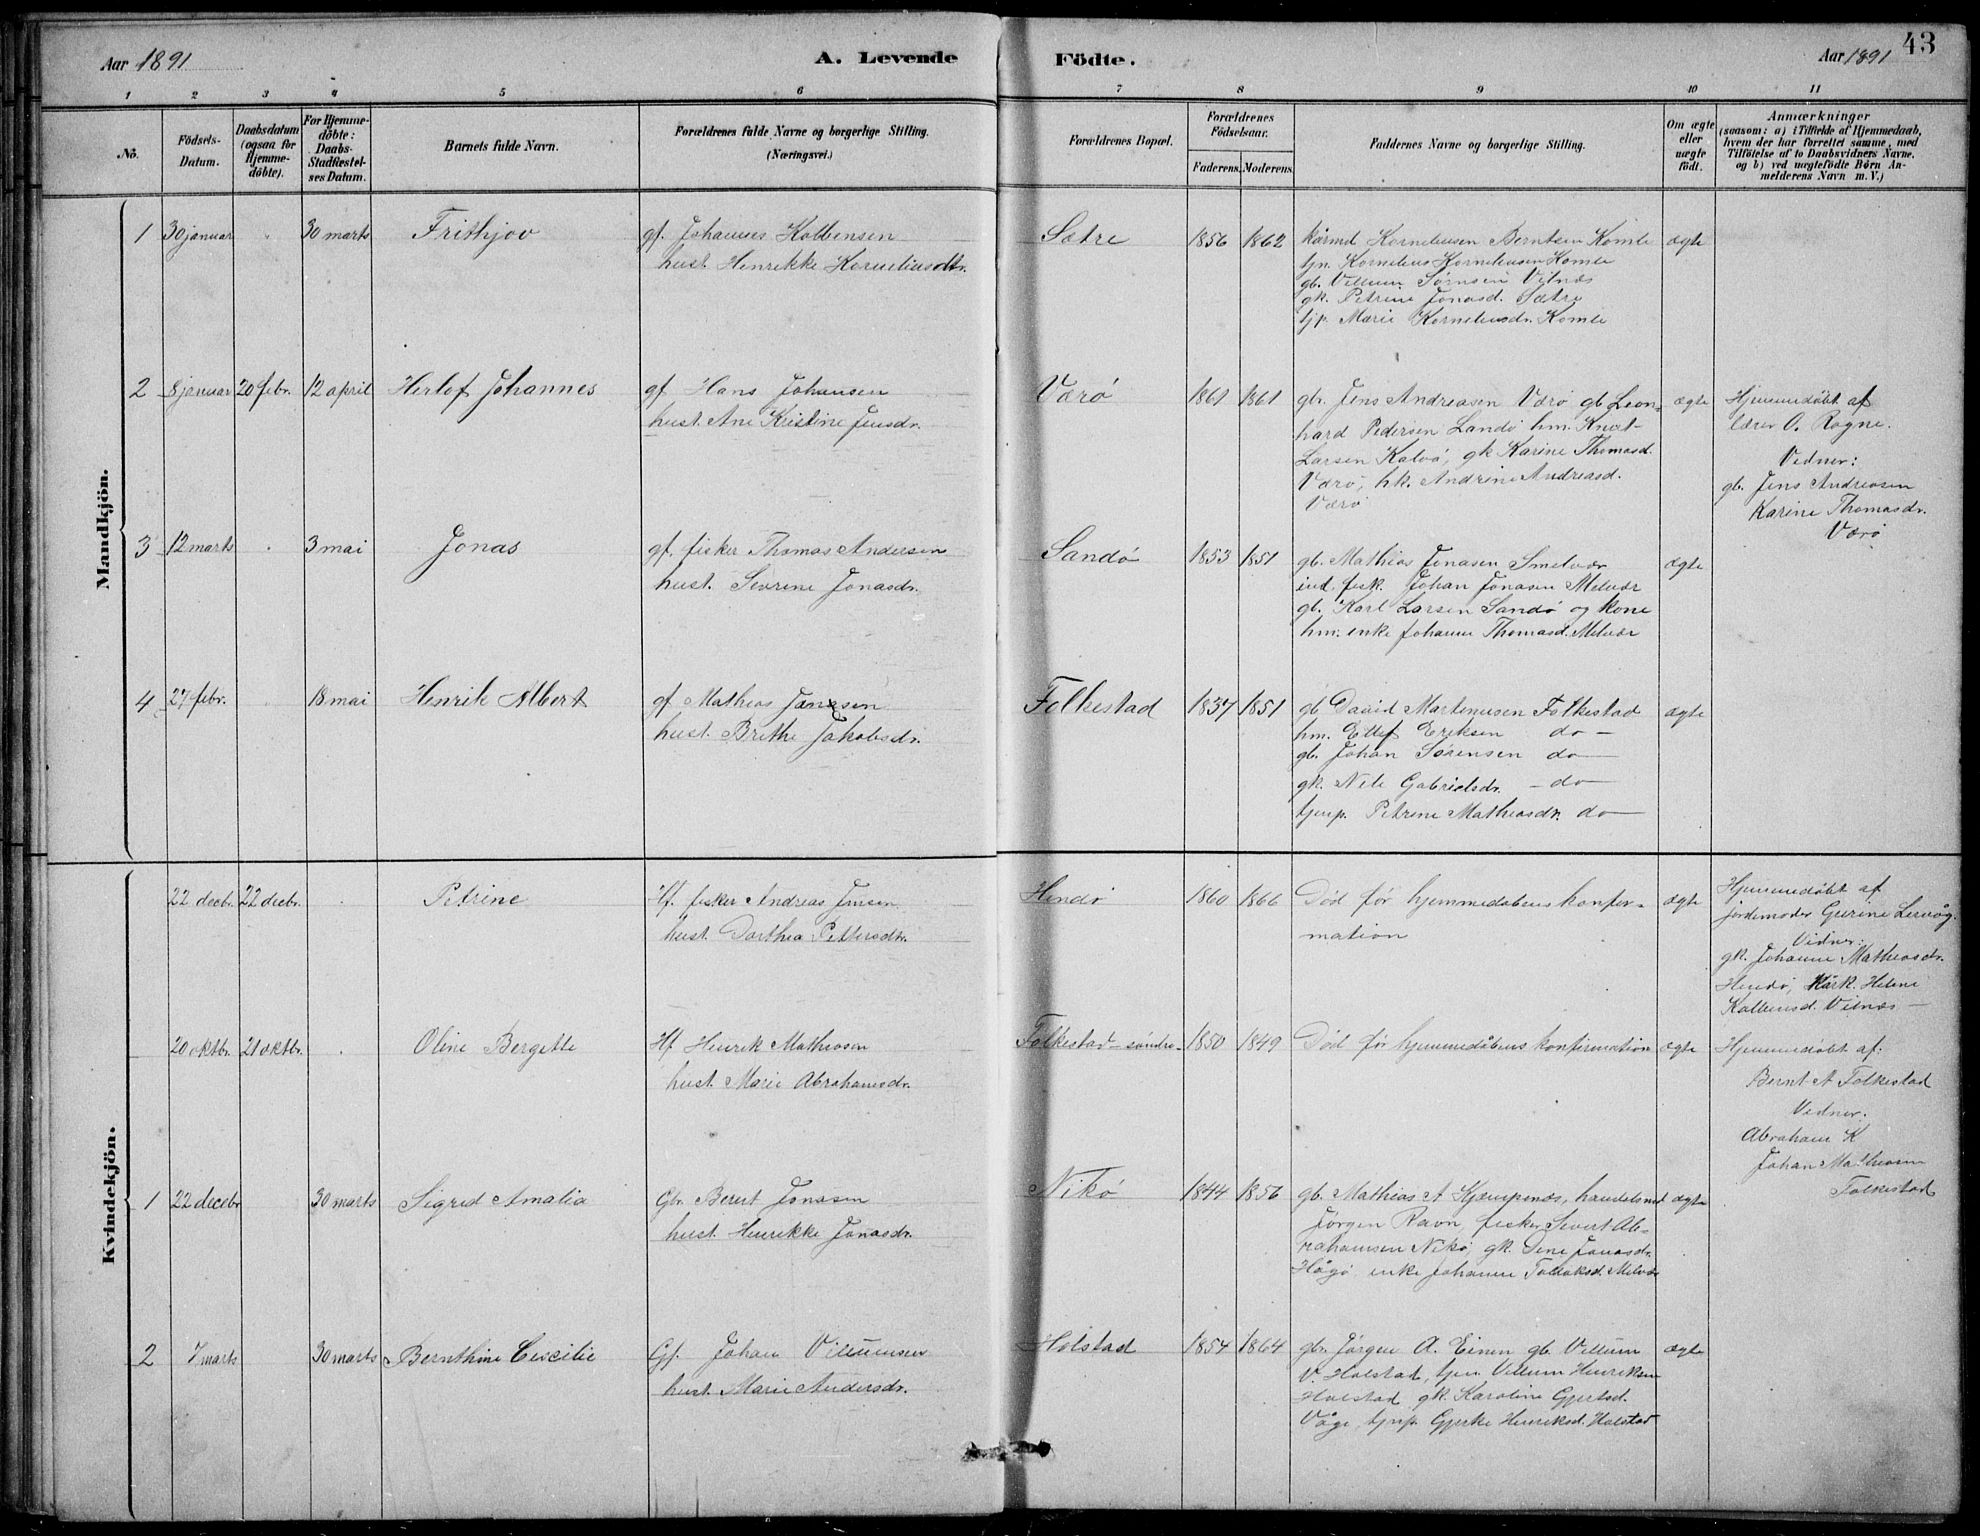 Aar 1891
A. Levende
Födte.
Aar 1891
43
1 2 3 4 5 6 7 8 9 10 11
No.
Födsels-
Datum.
Daabsdatum
(ogsaa for
Hjemme-
döbte).
For Hjemme-
döbte:
Daabs-
Stadfæstel-
ses Datum.
Barnets fulde Navn.
Forældrenes fulde Navne og borgerlige Stilling.
(Næringsvei.)
Forældrenes Bopæl.
Forældrenes
Födselsaar.
Faderens. Moderens.
Faddernes Navne og borgerlige Stilling.
Om ægte
eller
uægte
födt.
Anmærkninger
(saasom: a) i Tilfælde af Hjemmedaab,
hvem der har forrettet samme, med
Tilföielse af to Daabsvidners Navne.
og b) ved uægtefödte Börn An-
melderens Navn m. V.)
Mandkjön.
1 30 januar 30 marts Frithjov
gf. Johannes Kolbensen
hust. Henrikke Korneliusdtr.
Sætre 1856 1862
kårmd Korneliusen Berntsen Komle
tjn. Kornelius Korneliusen Komle
gb. Villum Sørnsen Vilnæs
gk. Petrine Jonasd. Sætre
tjp. Marie Korneliusdr. Komle
ægte
2 8 januar 20 febr. 12 april Herlof Johannes
gf. Hans Johansen
hust. Ane Kristine Jensdr.
Værø 1861 1861
gbr. Jens Andreasen Værø gb Leon-
hard Pedersen Landø hm. Knut
Larsen Kalvø, gk Karine Thomasd.
Værø, hk. Andrine Andreasd.
Værø
ægte
Hjemmedøbt af
lærer O. Rogne.
Vidner:
gb. Jens Andreasen
Karine Thomasdr.
Værø
3 12 marts 3 mai Jonas
gf. fisker Thomas Andersen
hust. Sevrine Jonasdr.
Sandø 1853 1851
gb. Mathias Jonasen Smelvær
ind. fisk. Johan Jonasen Melvær
gb. Karl Larsen Sandø og kone
hm. enke Johanne Thomasd. Melvær
ægte
4 27 febr. 18 mai Henrik Albert
gf Mathias Jansen
hust. Brithe Jakobsdr.
Folkestad 1837 1851
gb David Martenusen Folkestad
hm. Ellef Eriksen do —
gb. Johan Sørensen do —
gk. Nele Gabrielsdr. — do
tjenp. Petrine Mathiasdr. do —
ægte
Kvindekjön.
22 decbr. 22 decbr. Petrine
Hf. fisker Andreas Jensen
hust. Dorthea Pettersdtr.
Hendø 1860 1866
Død før hjemmedøbens konfir-
mation
ægte
Hjemmedøbt af
jordemoder Gurine Lervåg.
Vidner:
gk. Johanne Mathiasdr.
Hendø, Kårk. Helene
Kolbensd. Vilnæs —
20 oktbr. 21 oktbr. Oline Bergette
Hf. Henrik Mathiasen
hust. Marie Abrahamsdr.
Folkestad - søndre 1850 1849
Død før hjemmedåbens konfirmation
ægte
Hjemmedøbt af:
Bernt A Folkestad
Vidner.
Abraham K
Johan Mathiasen
Folkestad
1 22 decebr 30 marts Sigred Amalia
Gbr. Berent Jonasen
hust. Henrikke Jonasdr.
Nikø 1844 1856
gb. Mathias A Kjempenæs, handelsmd
Jørgen Ravn, fisker Sivert Ab-
rahamsen Nikø, gk. Sine Jonasdr.
Hågø enke Johanne Melvær
ægte
2 7 marts 30 marts Bernthine Cecilie
Gf. Johan Villumsen
hust. Marie Andersdr.
Holstad 1854 1864
gbr. Jørgen A. Einen gb. Villum
V. Holstad, tjen Villum Henriksen
Holstad gk. Karoline Gjertsd.
Våge tjnp. Gjerke Henriksd. Holstad
ægte